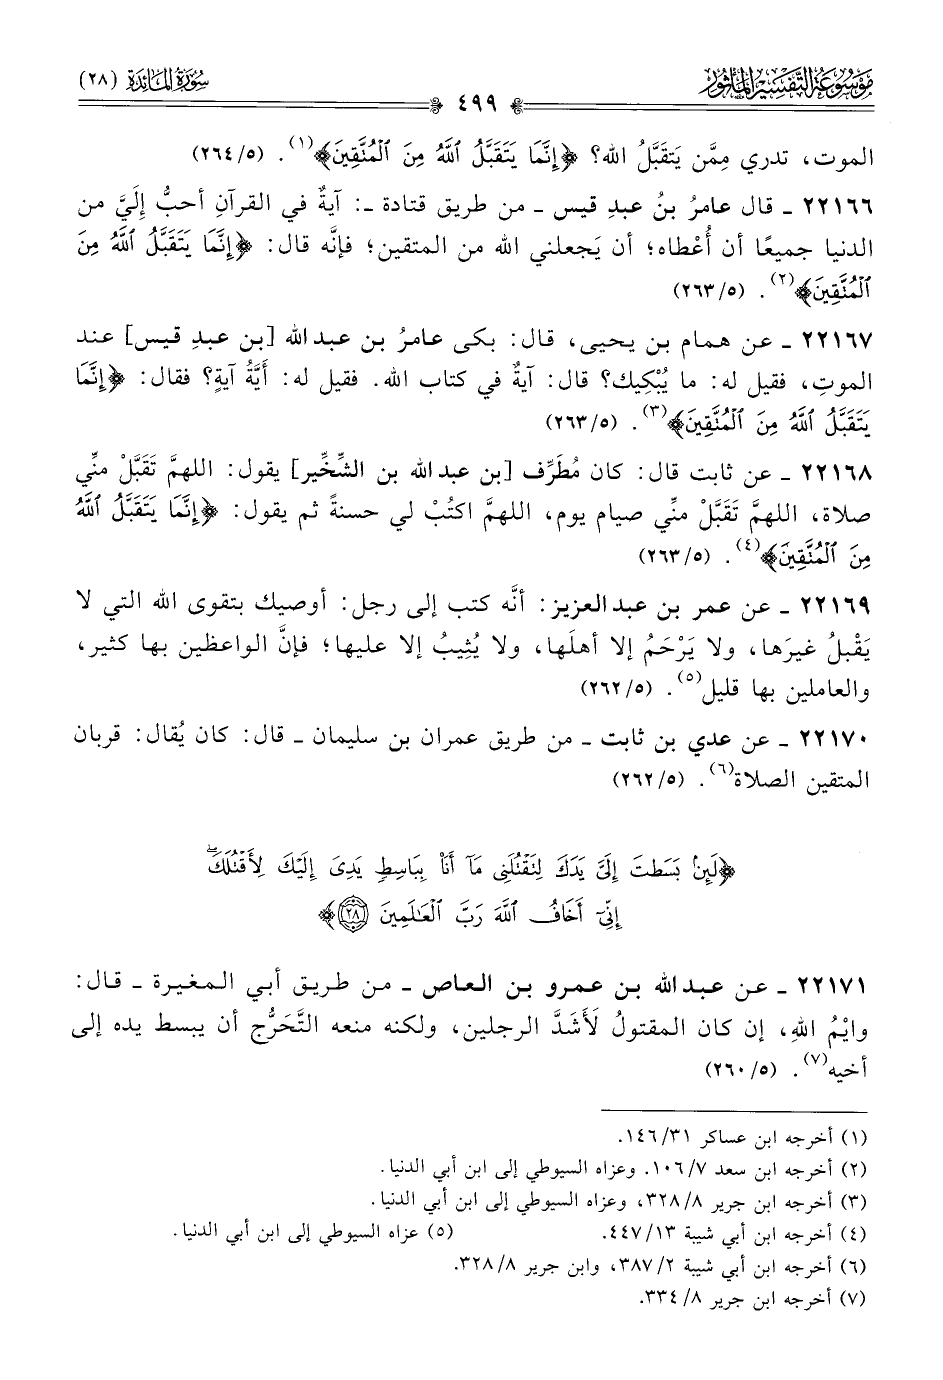 موسوعة التفسير المأثور
سورة المائدة (٢٨)
٤٩٩
الموت، تدري مِمَّن يَتقبَّلُ الله؟ ﴿إِنَّمَا يَتَقَبَّلُ ٱللَّهُ مِنَ ٱلْمُتَّقِينَ﴾(١). (٥/ ٢٦٤)
٢٢١٦٦ ـ قال عامرُ بنُ عبدِ قيس ـ من طريق قتادة ـ: آيةٌ في القرآنِ أحبُّ إلَيَّ من
الدنيا جميعًا أن أُعْطاه؛ أن يَجعلني الله من المتقين؛ فإنَّه قال: ﴿إِنَّمَا يَتَقَبَّلُ ٱللَّهُ مِنَ
ٱلْمُتَّقِينَ﴾(٢). (٥/ ٢٦٣)
٢٢١٦٧ ـ عن همام بن يحيى، قال: بكى عامرُ بن عبد الله [بن عبدِ قيس] عند
الموتِ، فقيل له: ما يُبْكِيك؟ قال: آيةٌ في كتاب الله. فقيل له: أَيَّةُ آيةٍ؟ فقال: ﴿إِنَّمَا
يَتَقَبَّلُ ٱللَّهُ مِنَ ٱلْمُتَّقِينَ﴾(٣). (٥/ ٢٦٣)
٢٢١٦٨ ـ عن ثابت قال: كان مُطَرِّف [بن عبد الله بن الشِّخِّير] يقول: اللهمَّ تَقَبَّلْ منِّي
صلاة، اللهمَّ تَقَبَّلْ منِّي صيام يوم، اللهمَّ اكتُبْ لي حسنةً ثم يقول: ﴿إِنَّمَا يَتَقَبَّلُ ٱللَّهُ
مِنَ ٱلْمُتَّقِينَ﴾(٤). (٥/ ٢٦٣)
٢٢١٦٩ ـ عن عمر بن عبد العزيز: أنَّه كتب إلى رجل: أوصيك بتقوى الله التي لا
يَقْبلُ غيرَها، ولا يَرْحَمُ إلا أهلَها، ولا يُثِيبُ إلا عليها؛ فإنَّ الواعظين بها كثير،
والعاملين بها قليل(٥). (٥/ ٢٦٢)
٢٢١٧٠ ـ عن عدي بن ثابت ـ من طريق عمران بن سليمان ـ قال: كان يُقال: قربان
المتقين الصلاة(٦). (٥/ ٢٦٢)
﴿لَئِنۢ بَسَطتَ إِلَىَّ يَدَكَ لِتَقْتُلَنِى مَآ أَنَا۠ بِبَاسِطٍ يَدِىَ إِلَيْكَ لِأَقْتُلَكَ ۖ
إِنِّىٓ أَخَافُ ٱللَّهَ رَبَّ ٱلْعَـٰلَمِينَ ٢٨﴾
٢٢١٧١ ـ عن عبد الله بن عمرو بن العاص ـ من طريق أبي المغيرة ـ قال:
وايْمُ اللهِ، إن كان المقتولُ لَأَشَدَّ الرجلين، ولكنه منعه التَّحَرُّج أن يبسط يده إلى
أخيه(٧). (٥/ ٢٦٠)
(١) أخرجه ابن عساكر ٣١/ ١٤٦.
(٢) أخرجه ابن سعد ٧/ ١٠٦. وعزاه السيوطي إلى ابن أبي الدنيا.
(٣) أخرجه ابن جرير ٨/ ٣٢٨، وعزاه السيوطي إلى ابن أبي الدنيا.
(٤) أخرجه ابن أبي شيبة ١٣/ ٤٤٧. (٥) عزاه السيوطي إلى ابن أبي الدنيا.
(٦) أخرجه ابن أبي شيبة ٢/ ٣٨٧، وابن جرير ٨/ ٣٢٨.
(٧) أخرجه ابن جرير ٨/ ٣٣٤.